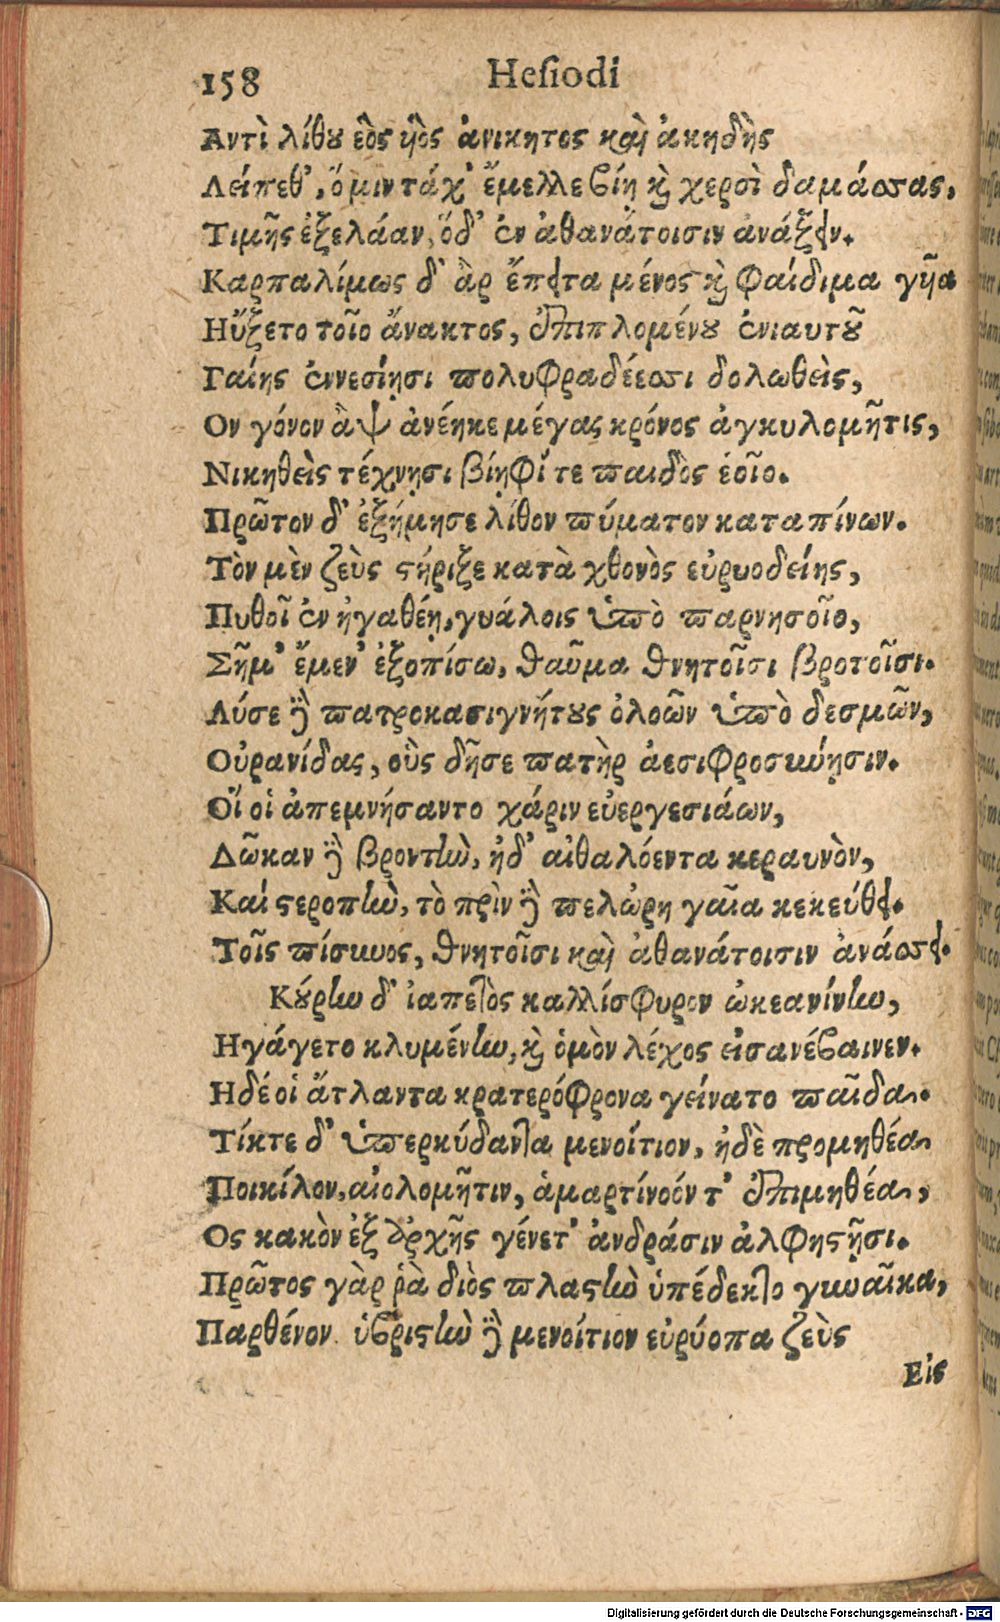 158 Hesiodi
Αντὶ λίθου ἑὸς υἱὸς ἀνικητος καὶ ἀκηδὴς
Λείπεθ', ὅ μιν τάχ' ἔμελλε βίῃ καὶ χερσὶ δαμάσσας,
Τιμῆς ἐξελάαν, ὅδ' ἐν ἀθανάτοισιν ἀνάξειν.
Καρπαλίμως δ' ἂρ ἔπειτα μένος καὶ φαίδιμα γυῖα
Ηὔξετο τοῖο ἄνακτος, ἐπιπλομένου ἐνιαυτοῦ
Γαίης ἐννεσίῃσι πολυφραδέεσσι δολωθεὶς,
Ον γόνον ἂψ ἀνέηκε μέγας κρόνος ἀγκυλομῆτις,
Νικηθεὶς τέχνῃσι βίηφί τε παιδὸς ἑοῖο.
Πρῶτον δ' ἐξήμησε λίθον πύματον καταπίνων.
Τὸν μὲν ζεὺς στήριξε κατὰ χθονὸς εὐρυοδείης,
Πυθοῖ ἐν ἠγαθέῃ, γυάλοις ὑπὸ παρνησοῖο,
Σῆμ' ἔμεν' ἐξοπίσω, θαῦμα θνητοῖσι βροτοῖσι.
Λύσε δὲ πατροκασιγνήτους ὀλοῶν ὑπὸ δεσμῶν,
Οὐρανίδας, οὓς δῆσε πατὴρ ἀεσιφροσύνῃσιν.
Οἵ οἱ ἀπεμνήσαντο χάριν εὐεργεσιάων,
Δῶκαν δὲ βροντὴν, ἠδ' αἰθαλόεντα κεραυνὸν,
Καὶ στεροπὴν, τὸ πρὶν δὲ πελώρη γαῖα κεκεύθει.
Τοῖς πίσυνος, θνητοῖσι καὶ ἀθανάτοισιν ἀνάσσει.
Κούρην δ' ἰαπετὸς καλλίσφυρον ὠκεανίνην,
Ηγάγετο κλυμένην, καὶ ὁμὸν λέχος εἰσανέβαινεν.
Ηδέ οἱ ἄτλαντα κρατερόφρονα γείνατο παῖδα.
Τίκτε δ' ὑπερκύδαντα μενοίτιον, ἠδὲ προμηθέα
Ποικίλον, αἰολομῆτιν, ἁμαρτίνοόν τ' ἐπιμηθέα,
Ος κακὸν ἐξ ἀρχῆς γένετ' ἀνδράσιν ἀλφηστῇσι.
Πρῶτος γὰρ ῥὰ διὸς πλαστὴν ὑπέδεκτο γυναῖκα,
Παρθένον. ὑβριστὴν δὲ μενοίτιον εὐρύοπα ζεὺς
Εἰς
Digitalisierung gefördert durch die Deutsche Forschungsgemeinschaft - DFG